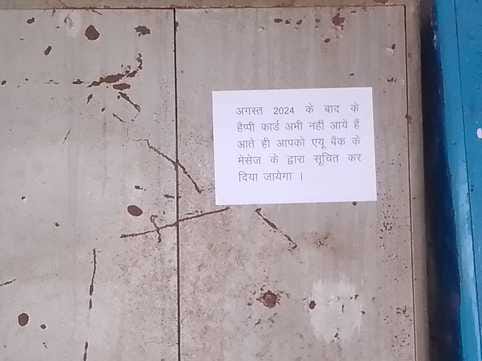 अगस्त 2024 के बाद के
हैप्पी कार्ड अभी नहीं आये हैं
आते ही आपको एयू बैंक के
मेसेज के द्वारा सूचित कर
दिया जायेगा ।